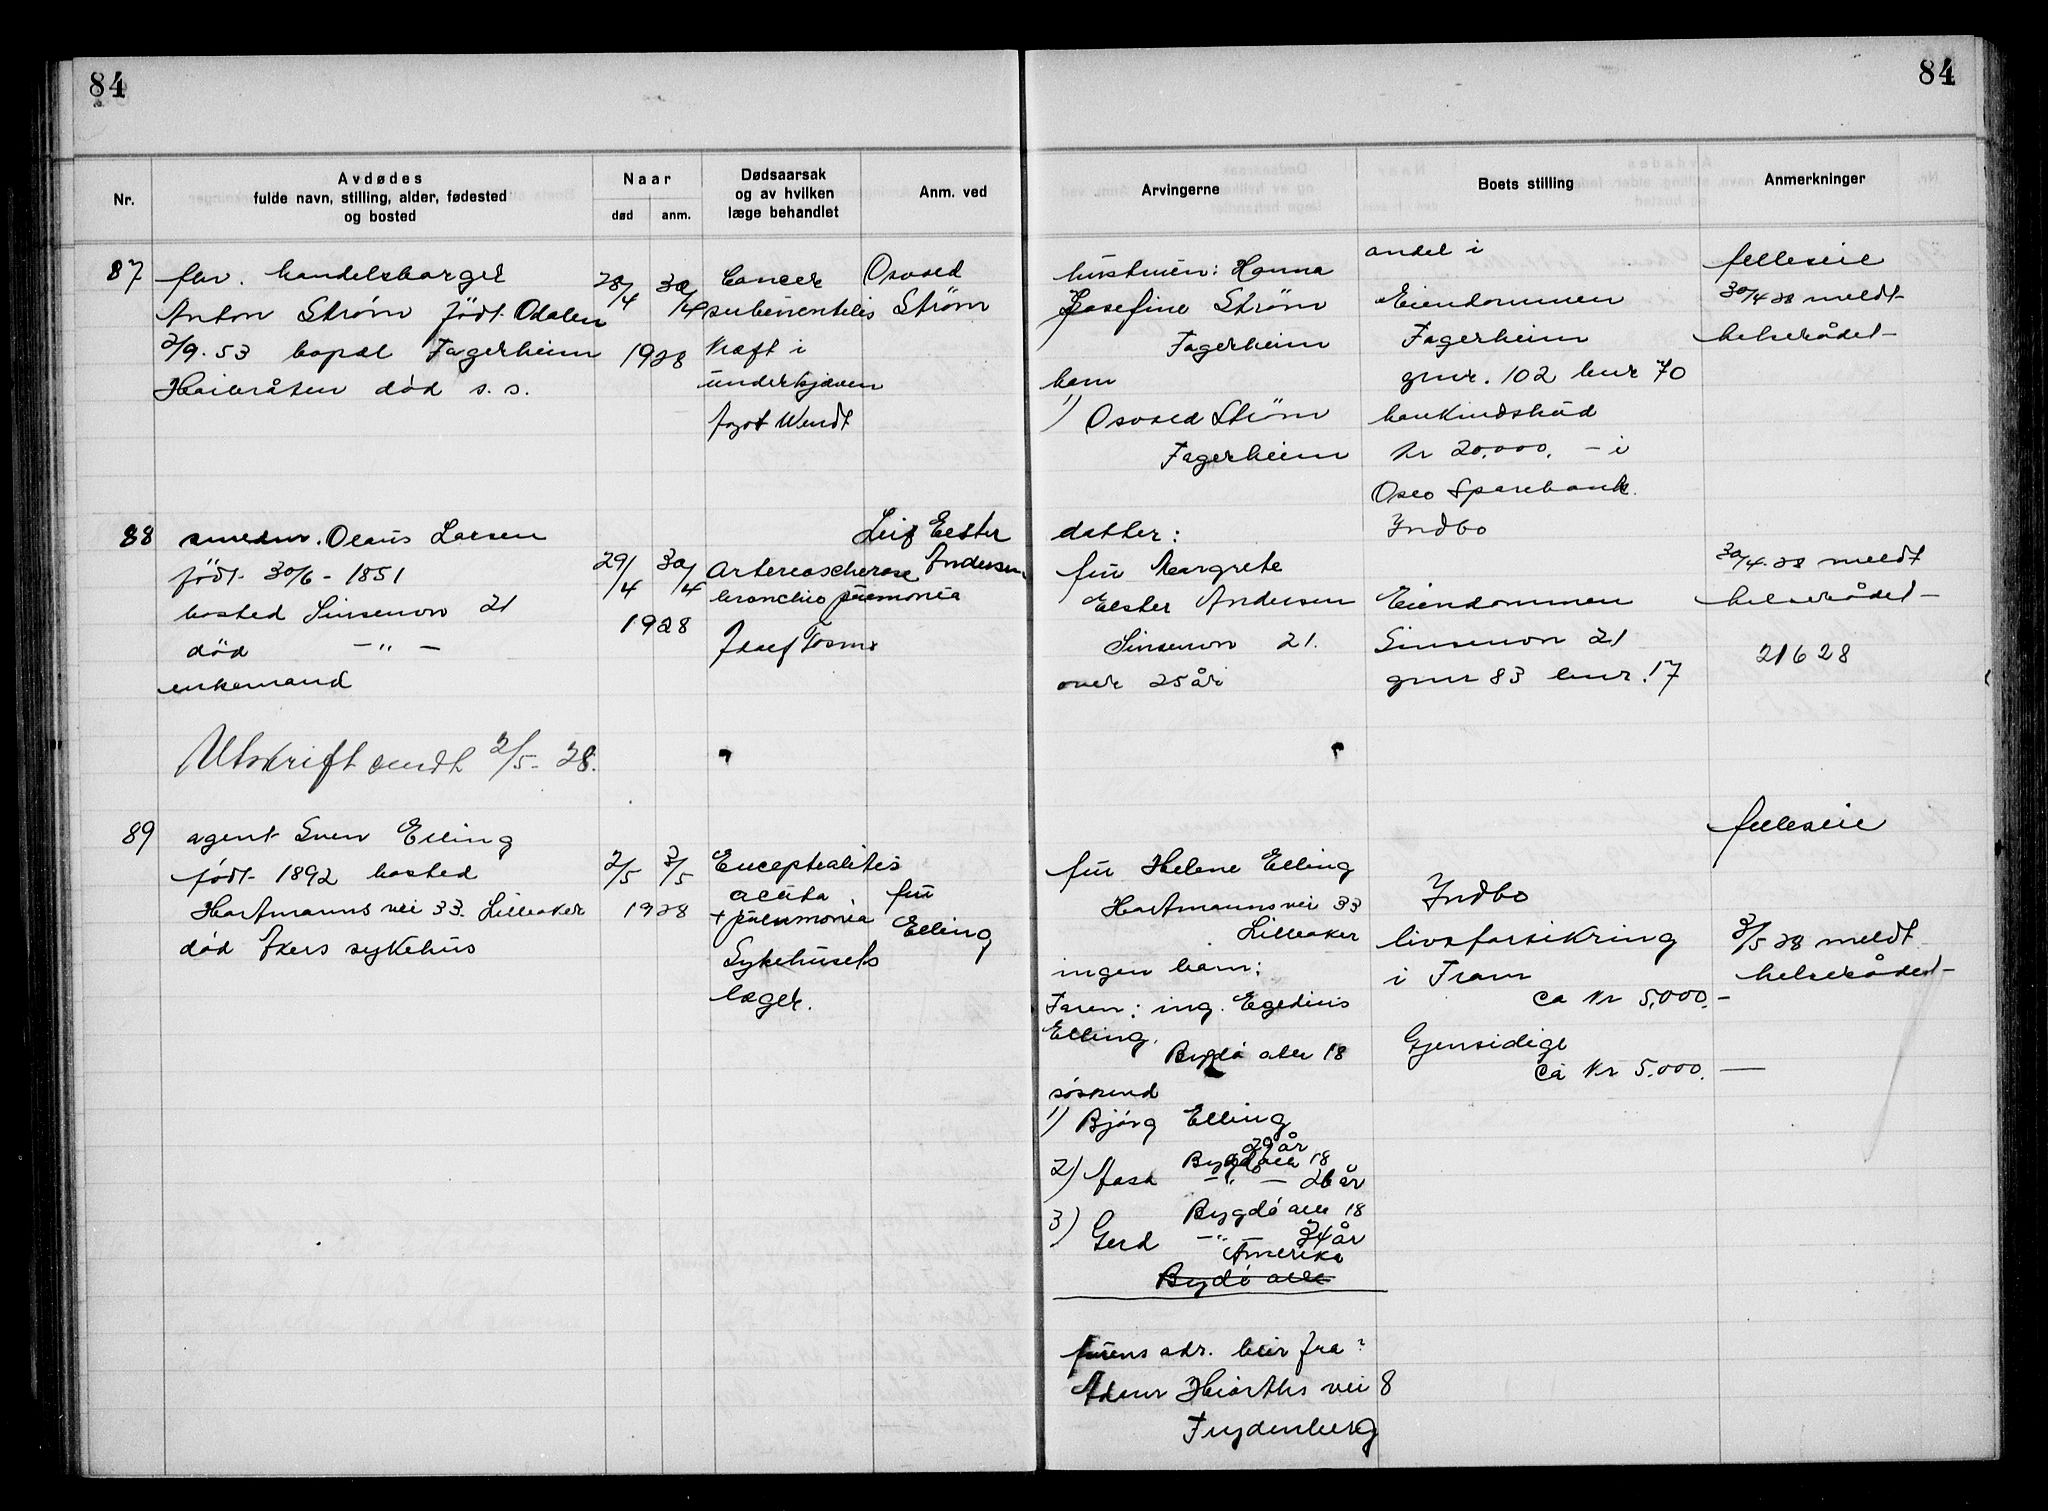 84
84
Nr.
Avdødes
fulde navn, stilling, alder, fødested
og bosted
Naar
død
anm.
Dødsaarsak
og av hvilken
læge behandlet
Anm. ved
Arvingerne
Boets stilling
Anmerkninger
87
fhv. handelsborger
Anton Strøm født Odalen
2/9.53 bopæl Fagerheim
død s.s.
28/4 30/4
1928
Cancer
Kræft i
underkjæven
Wendt
Osvald
Strøm
hustruen: Hanna
Josefine Strøm
Fagerheim
barn
1) Osvald Strøm
Fagerheim
andel i
Eiendommen
Fagerheim
gnr. 102 bnr 70
bankindskud
kr 20.000. - i
Oslo Sparebank.
felleseie
30/4 28 meldt
helserådet
88
Olaus Larsen
født 30/6 - 1851
bosted Sinsenvn 21
død -"-
enkemand
Utskrift sendt 2/5 - 28.
29/4 30/4
1928
Arterioscherose
bronchio pneumonia
Leif Elster
Andersen
datter:
fru Margrete
Elster Andersen
Sinsenvn 21.
over 25 år
Indbo
Eiendommen
Sinsenvn 21
gnr 83 bnr. 17
30/4 28 meldt
helserådet
21628
89
agent Sven Elling
født 1892 bosted
Hartmanns vei 33. Lilleaker
død Akers sykehus
2/5 3/5
1928
Encephalites
acuta
+ pneumonia
Sykehusets
læger.
fru
Elling
fru Helene Elling
Hartmanns vei 33
Lilleaker
ingen barn:
Faren: ing. Egedius
Elling.
Bygdø alle 18
søskend
1) Bjørg Elling
29 år
Bygdø alle 18
2) Aasa -"- 26 år
Bygdø alle 18
3) Gerd -"- 24 år
Amerika
Bygdø alle
fruens adr. blir fra?
Adm Hiorths vei 8
Frydenberg
felleseie
Indbo
livsforsikring
i Fram
ca kr 5.000.-
Gjensidige
ca kr 5.000. -
3/5 28 meldt
helserådet